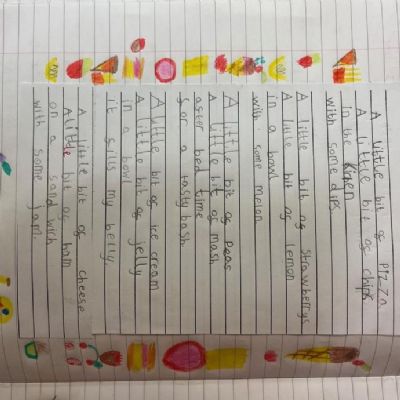 A little bit of Pizza
A little bit of chips
in the
with some dips
A little bit of strawberrys
A little bit of lemon
in a bowl
with. some melon
A little bit of Peas
A little bit of mash
after bed time
for a tasty bash
A little bit of ice cream
A little bit of jelly
in a bowl
it fills my belly
A little bit of cheese
A little bit of ham
on a sandwich
with some jam.